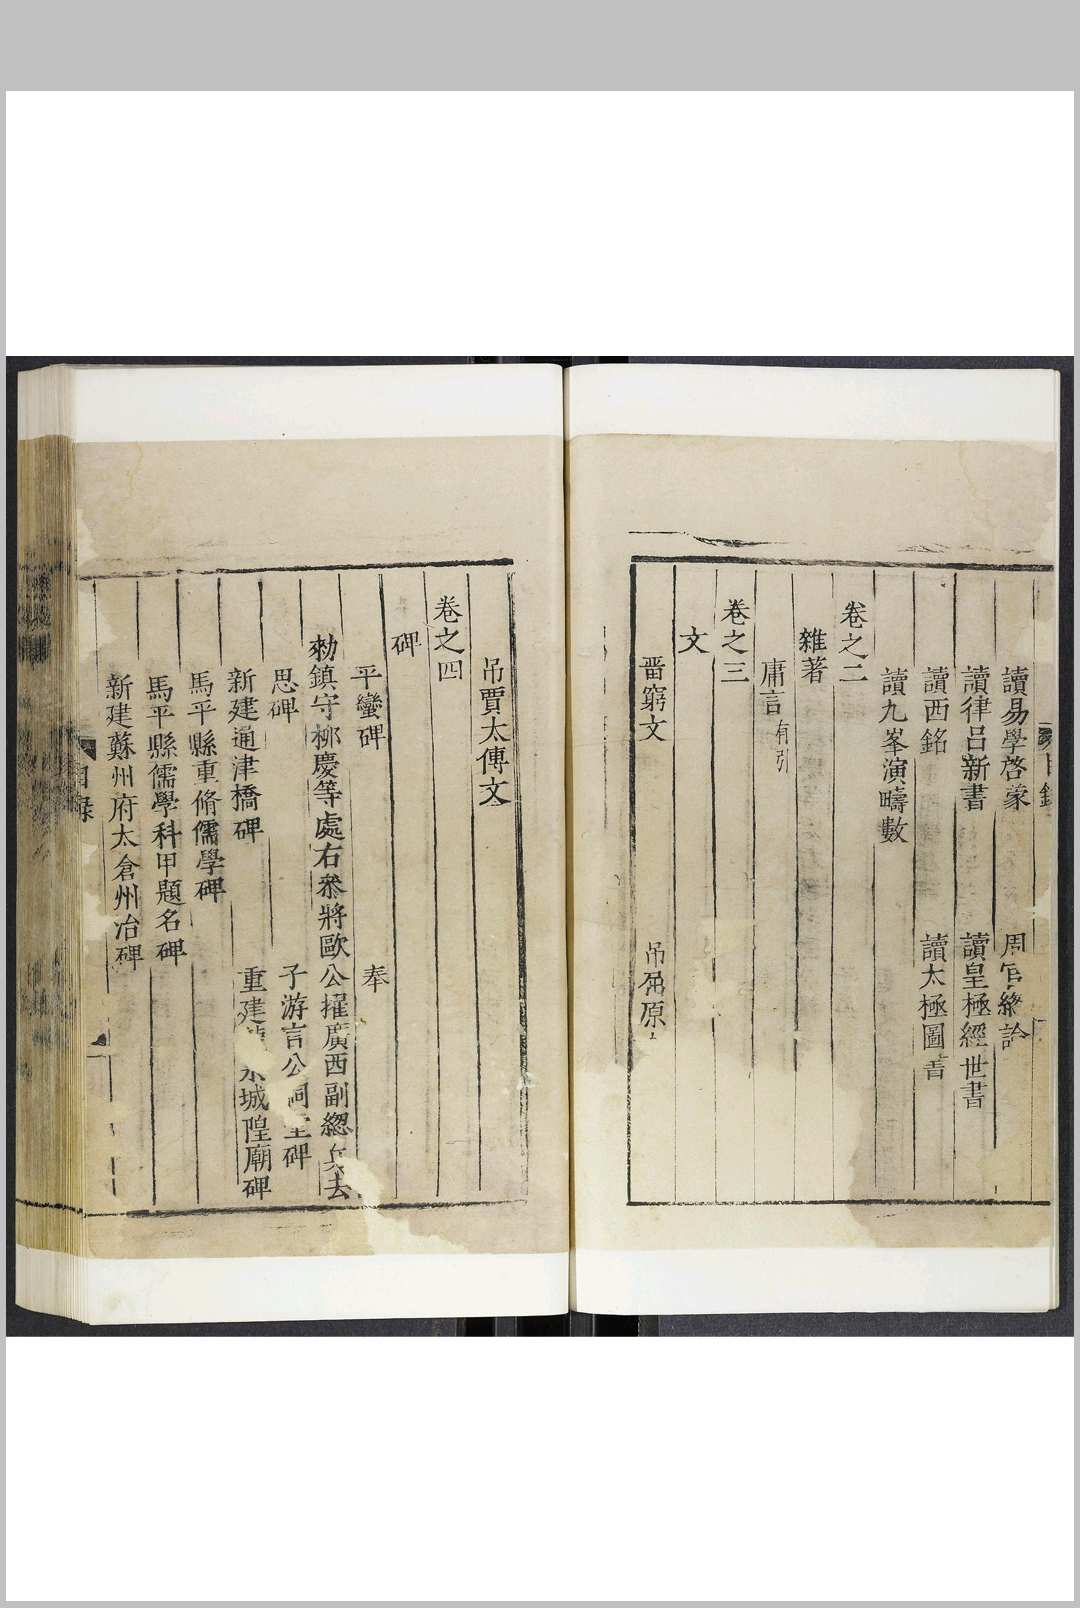 目錄
讀易學啓蒙 周官終論
讀律吕新書 讀皇極經世書
讀西銘 讀太極圖
讀九峯演疇數
卷之二
雜著
庸言有引
卷之三
文
晋窮文 吊屈原
吊賈太傅文
卷之四
碑
平蠻碑 奉
勑鎮守栁慶等處右叅將歐公擢廣西副緫兵去
思碑 子游言公祠堂碑
新建通津橋碑 重建 城隍廟碑
馬平縣重脩儒學碑
馬平縣儒學科甲題名碑
新建蘇州府太倉州冶碑
目録